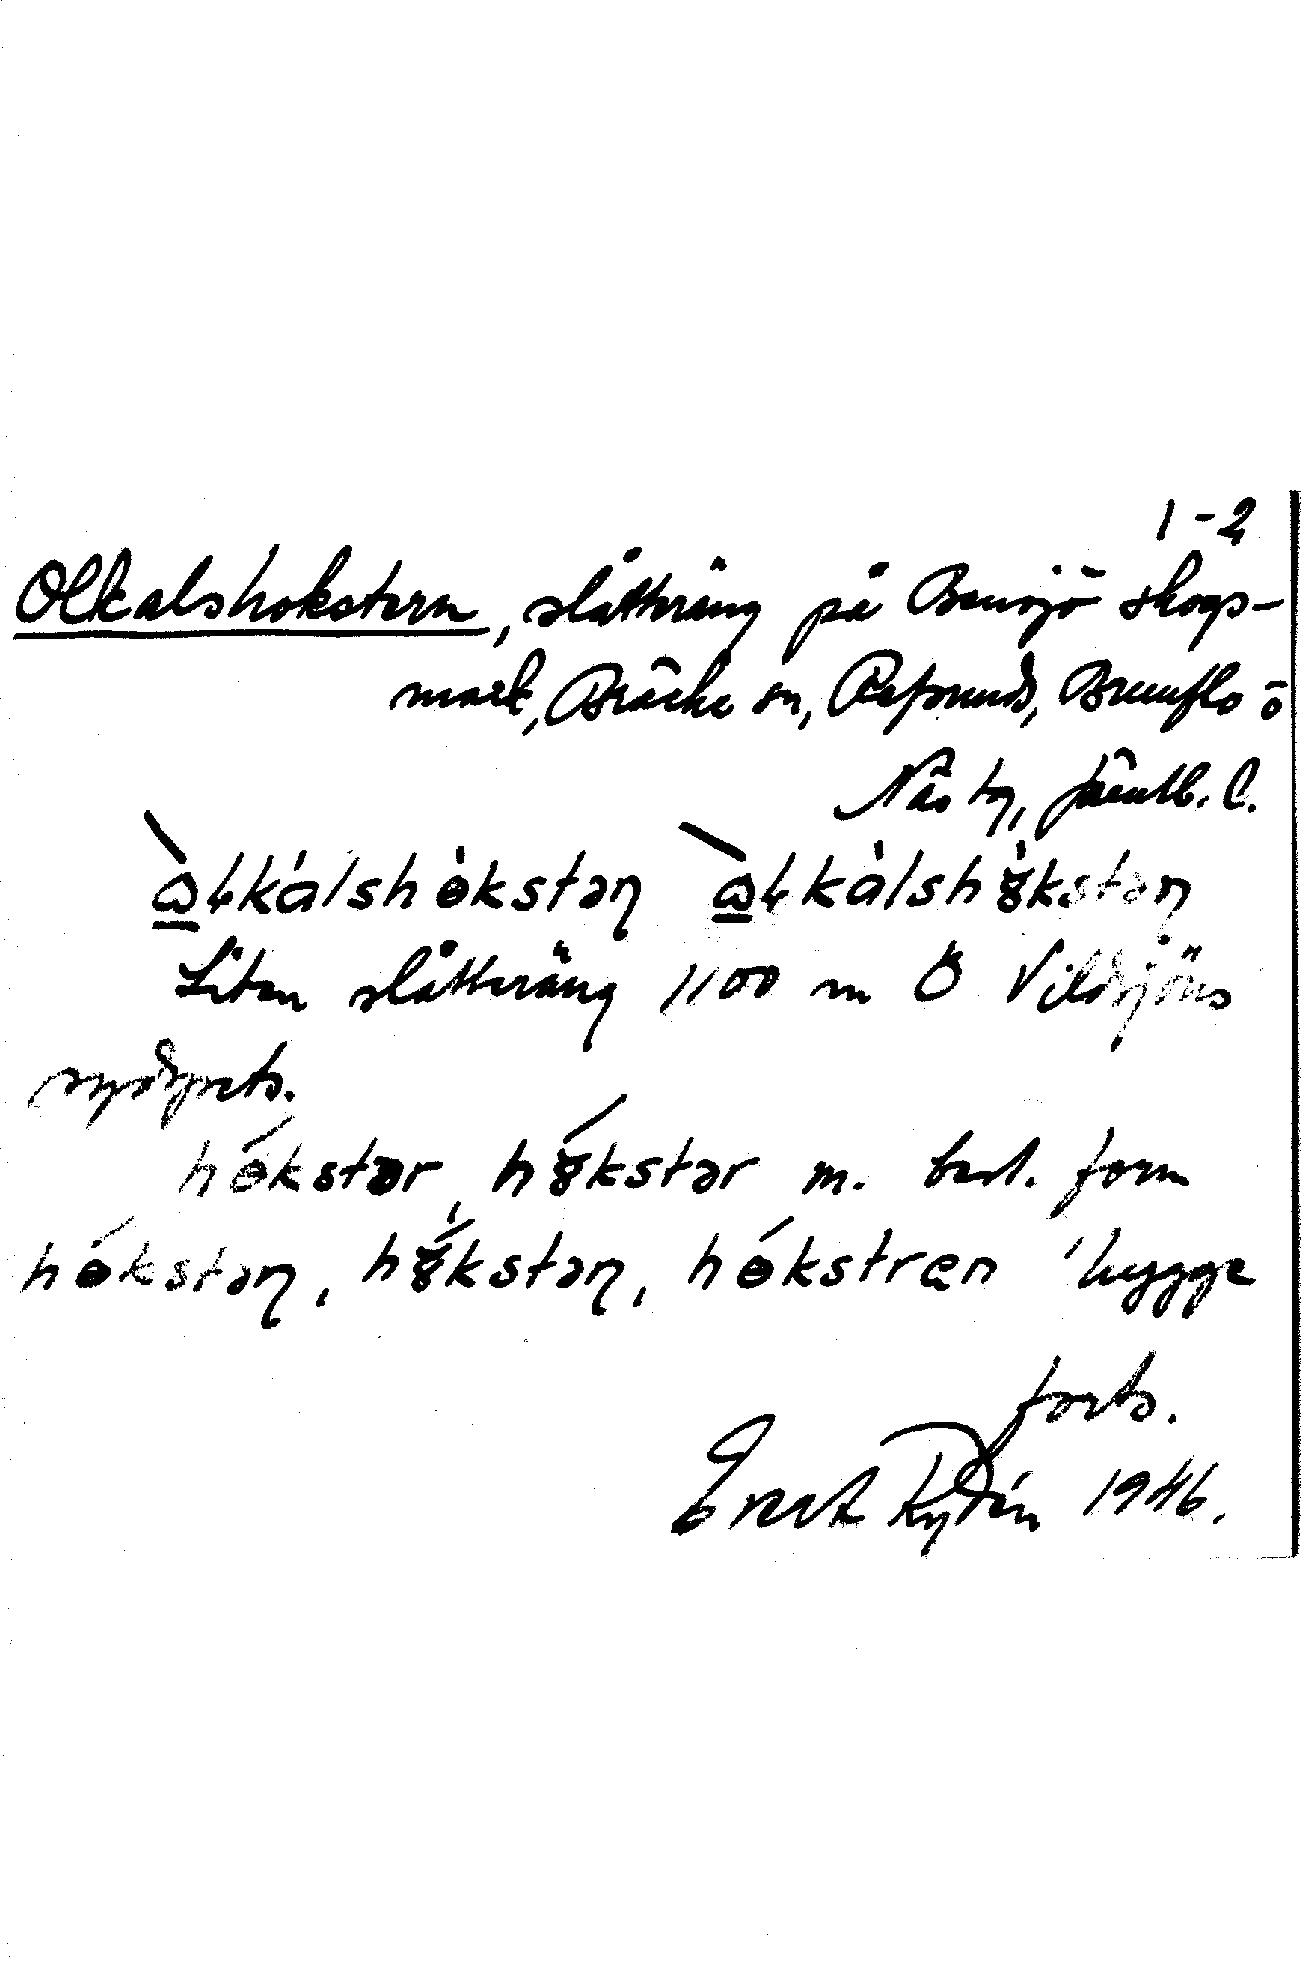 1-2
Olkalshokstern, slåtteräng på Bensjö skogs-
mark, Bräcke sn, Refsunds, Brunflo o
Näs tg, Jämtl. l.
ꞷ̀ɬkálshɵ̀kstəꞃ ꞷ̀ɬkàlshȣ̀kstəꞃ
Liten slåtteräng 1100 m Ö Vildsjöns
sydspets.
hɵ́kstər, hȣ́kstər m. best. form
hɵ́kstəꞃ, hȣ́kstəꞃ, hɵ́kstren 'hygge
forts.
Ernst Rydén 1946.